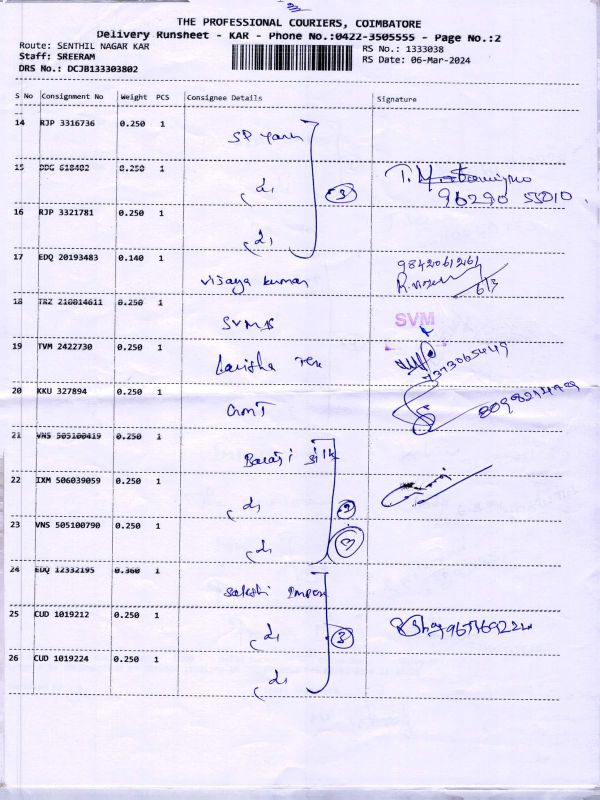 THE PROFESSIONAL COURIERS, COIMBATORE
Delivery Runsheet - KAR - Phone No.:0422-3505555 - Page No.:2
Route: SENTHIL NAGAR KAR
RS No.: 1333038
Staff: SREERAM
RS Date: 06-Mar-2024
DRS No.: DCJB133303802
S No Consignment No Weight PCS Consignee Details Signature
14 RJP 3316736 0.250 1
SP yarn
15 DDG 618402 0.250 1
3
96290 55010
16 RJP 3321781 0.250 1
17 EDQ 20193483 0.140 1
vijaya kumar
9842061261
6/3
18 TRZ 210014611 0.250 1
SVM
19 TVM 2422730 0.250 1
20 KKU 327894 0.250 1
21 VNS 505100419 0.250 1
Balaji silk
22 IXM 506039059 0.250 1
23 VNS 505100790 0.250 1
3
24 EDQ 12332195 0.360 1
sakshi Impex
25 CUD 1019212 0.250 1
3
26 CUD 1019224 0.250 1